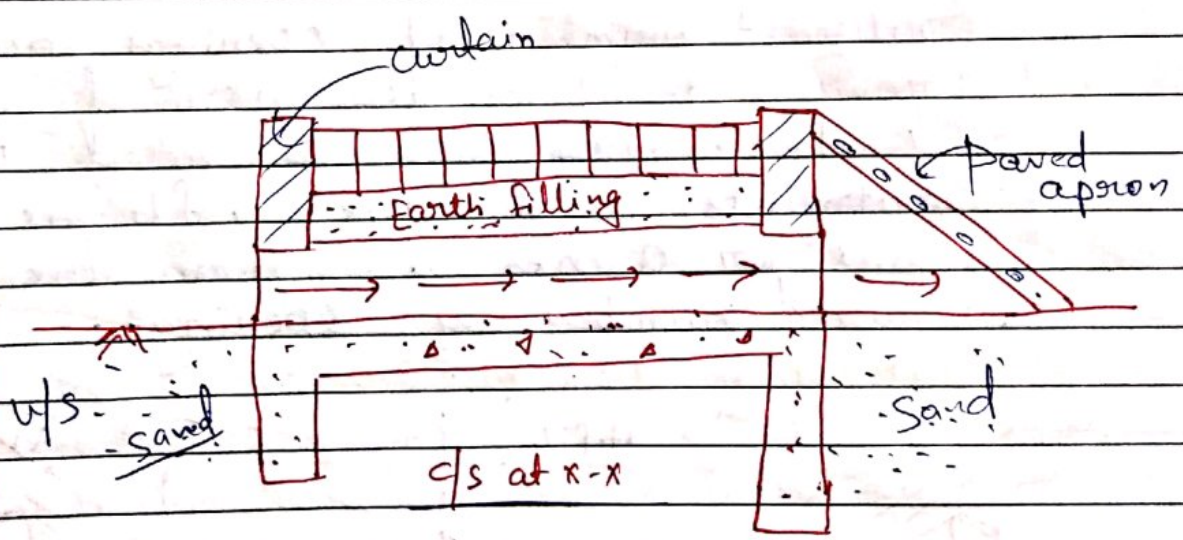 curtain
Paved
apron
Earth filling
u/s
sand
Sand
c/s at x-x